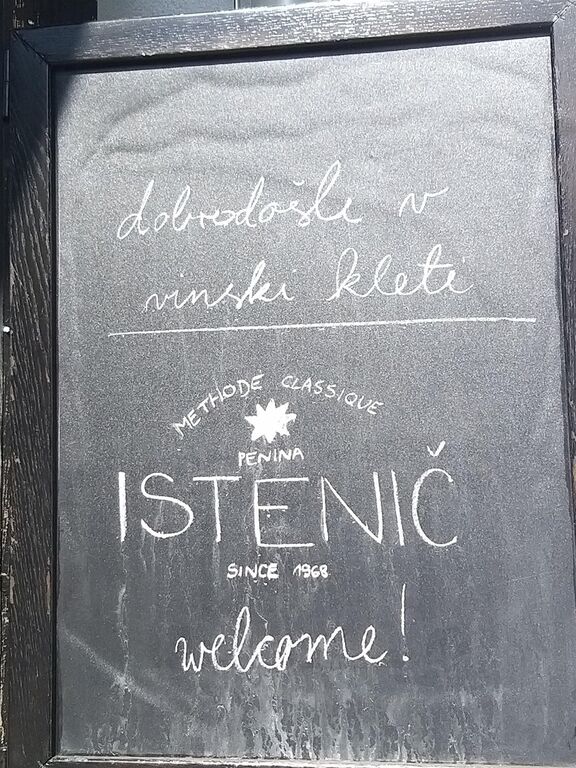 dobrodošle v
vinski kleti
METHODE CLASSIQUE
PENINA
ISTENIČ
SINCE 1968
welcome!